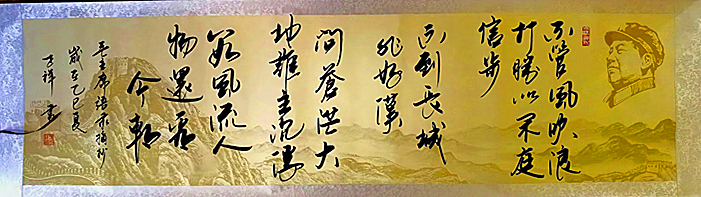 不管风吹浪
打勝似闲庭
信步
不到长城
非好漢
问蒼茫大
地谁主沉浮
数风流人
物還看
今朝
毛主席语录摘抄
岁在乙巳夏
祥书